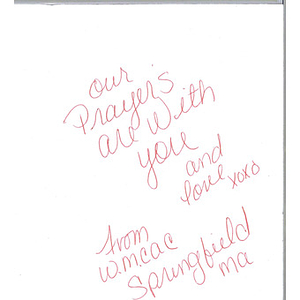 our
Prayer's
are with
you
and
love xoxo
from
W.M.C.A.C
Springfield
ma